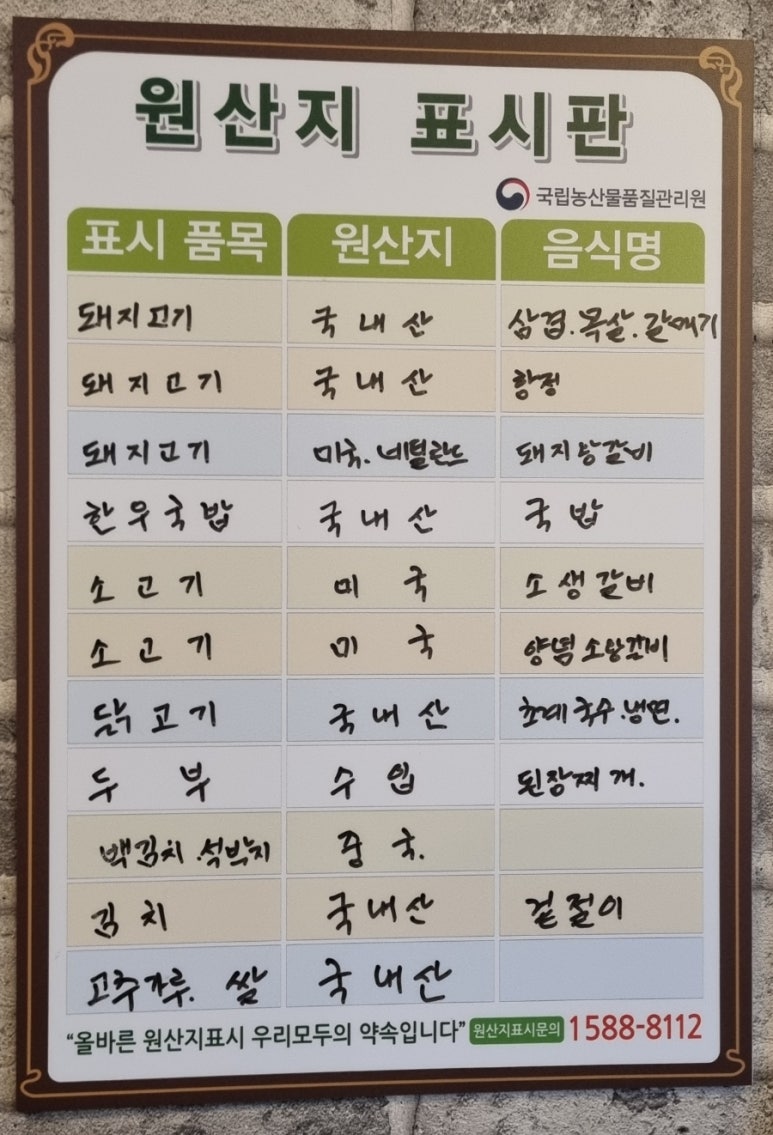 원산지 표시판
국립농산물품질관리원
표시 품목 원산지 음식명
돼지고기 국내산 삼겹.목살.갈매기
돼지고기 국내산 항정
돼지고기 미국.네덜란드 돼지왕갈비
한우국밥 국내산 국밥
소고기 미국 소생갈비
소고기 미국 양념소왕갈비
닭고기 국내산 초계국수.냉면.
두부 수입 된장찌개.
백김치.석박지 중국.
김치 국내산 겉절이
고추가루. 쌀 국내산
"올바른 원산지표시 우리모두의 약속입니다" 원산지표시문의 1588-8112